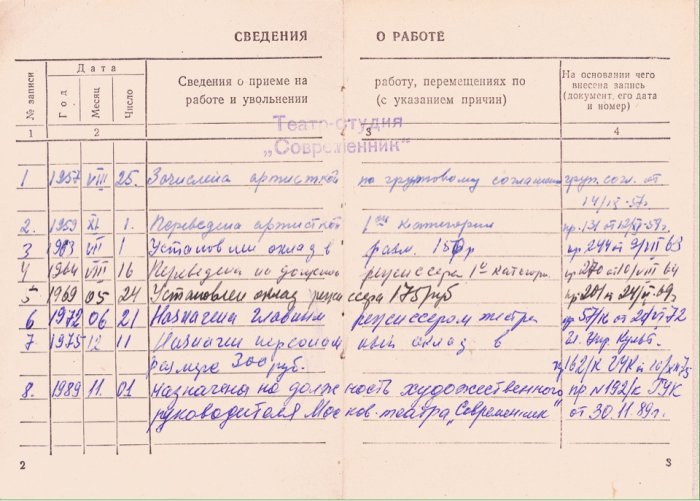 СВЕДЕНИЯ О РАБОТЕ
№ записи
Дата
Год
Месяц
Число
Сведения о приеме на работу, перемещениях по
работе и увольнении (с указанием причин)
На основании чего
внесена запись
(документ, его дата
и номер)
1 2 3 4
Театр-студия
„Современник"
1 1957 VIII 25. Зачислена артисткой по групповому соглашению груп. согл. от
2. 1959 XI 1. Переведена артисткой 1ой категории
3 1963 VII 1 Установлен оклад в разм. 150 р пр 244 от 9/VII 63
4 1964 VIII 16 Переведена на должность режиссера 1ой категори. пр 270 от 10/VIII 64
5 1969 05 24 Установлен оклад режиссера 175 руб пр 201 от
6 1972 06 21 Назначена главным режиссером театра
7 1975 12 11 Назначен персональный оклад в Гл. Упр. Культ.
размере 300 руб.
8. 1989 11. 01 назначена на должность художественного пр №192/к ГУК
руководителя Москов. театра „Современник" от 30.11.89г.
2 3